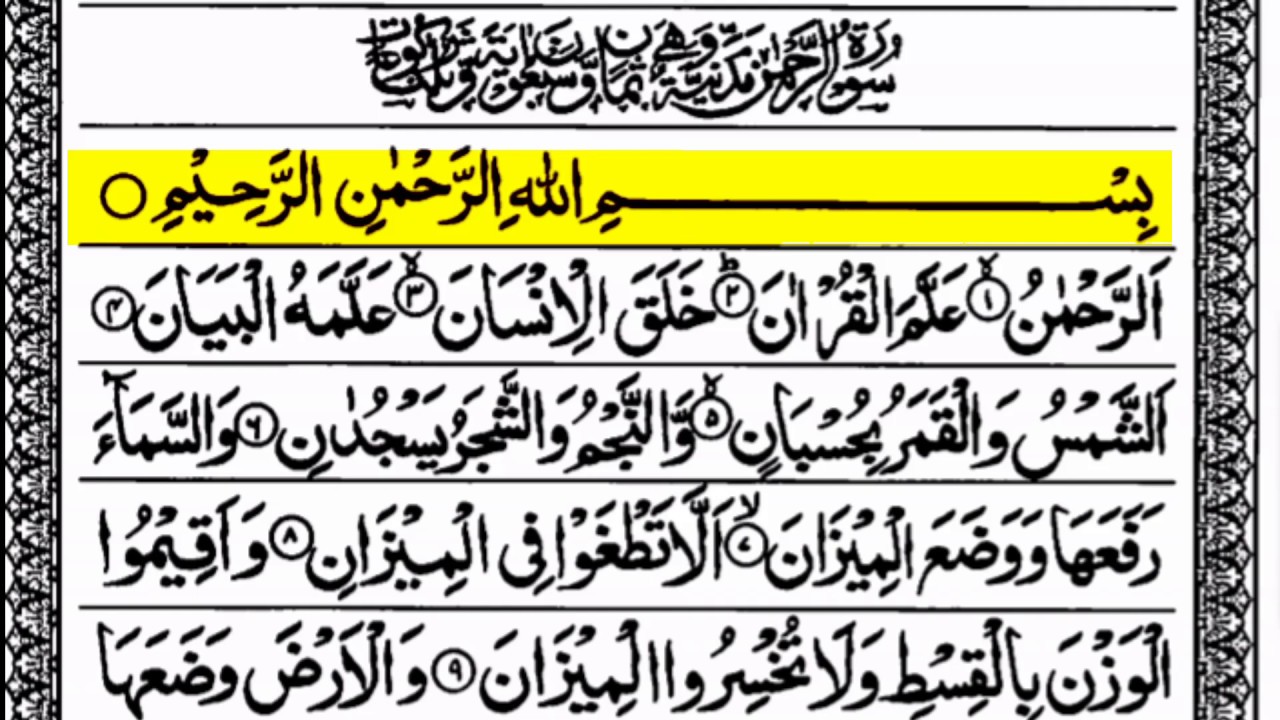 سُوْرَةُ الرَّحْمٰنِ مَدَنِيَّةٌ وَّهِيَ ثَمَانٌ وَّسَبْعُوْنَ اٰيَةً وَّثَلٰثُ رُكُوْعَاتٍ
بِسْمِ اللّٰهِ الرَّحْمٰنِ الرَّحِيْمِ ○
اَلرَّحْمٰنُ ۙ﴿۱﴾ عَلَّمَ الْقُرْاٰنَ ؕ﴿۲﴾ خَلَقَ الْاِنْسَانَ ۙ﴿۳﴾ عَلَّمَهُ الْبَيَانَ ﴿۴﴾
اَلشَّمْسُ وَالْقَمَرُ بِحُسْبَانٍ ۙ﴿۵﴾ وَّالنَّجْمُ وَالشَّجَرُ يَسْجُدٰنِ ﴿۶﴾ وَالسَّمَآءَ
رَفَعَهَا وَوَضَعَ الْمِيْزَانَ ۙ﴿۷﴾ اَلَّا تَطْغَوْا فِى الْمِيْزَانِ ﴿۸﴾ وَاَقِيْمُوا
الْوَزْنَ بِالْقِسْطِ وَلَا تُخْسِرُوا الْمِيْزَانَ ﴿۹﴾ وَالْاَرْضَ وَضَعَهَا